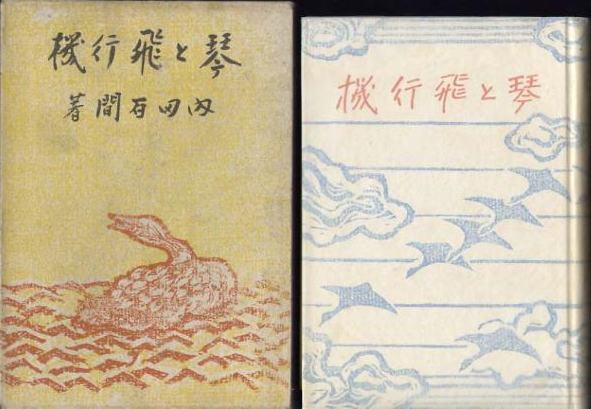 琴と飛行機
内田百間著
琴と飛行機